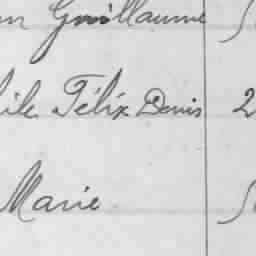 Guillaume
Félix Denis 2
Marie